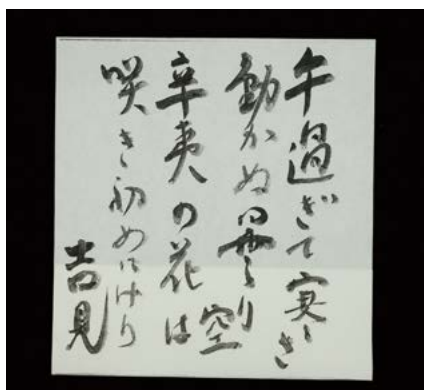 午過ぎて寒き
動かぬ曇り空
辛夷の花は
咲き初めにけり
吉見